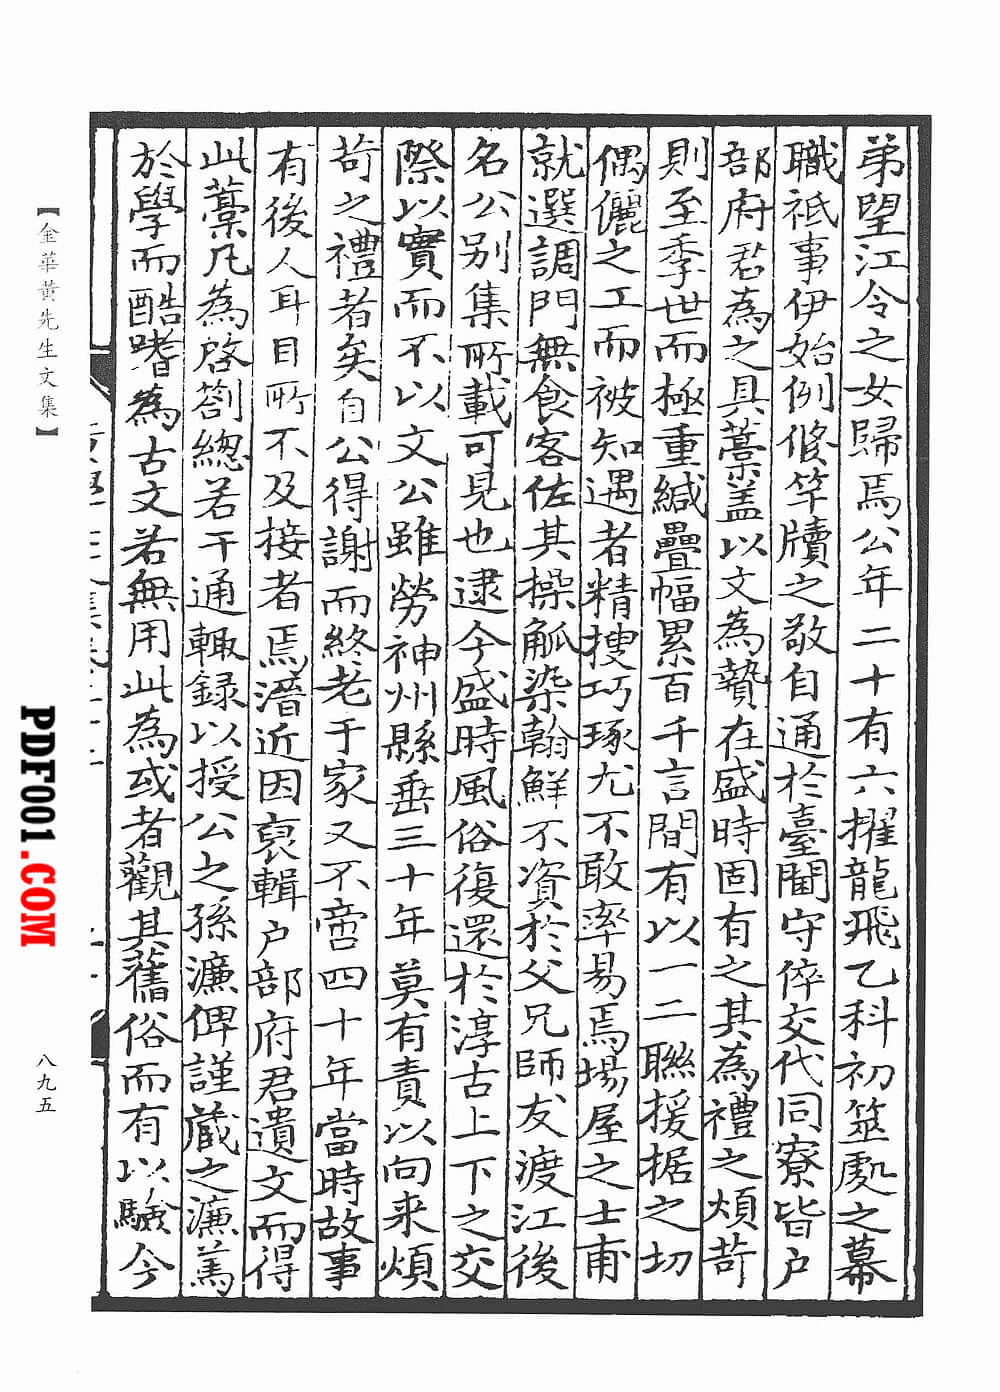 弟望江令之女歸焉公年二十有六擢龍飛乙科初筮處之幕
職祗事伊始例脩竿牘之敬自通於臺閫守倅交代同寮皆戶
部府君為之具藁盖以文為贄在盛時固有之其為禮之煩苛
則至季世而極重緘疊幅累百千言間有以一二聯援据之切
偶儷之工而被知遇者精搜巧琢尤不敢率易焉場屋之士甫
就選調門無食客佐其操觚染翰鮮不資於父兄師友渡江後
名公别集所載可見也逮今盛時風俗復還於淳古上下之交
際以實而不以文公雖勞神州縣垂三十年莫有責以向来煩
苛之禮者矣自公得謝而終老于家又不啻四十年當時故事
有後人耳目所不及接者焉溍近因裒輯户部府君遺文而得
此藁凡為啓劄總若干通輙録以授公之孫濂俾謹藏之濂篤
於學而酷嗜為古文若無用此為或者觀其舊俗而有以驗今
【金華黄先生文集】
八九五
PDF001.COM